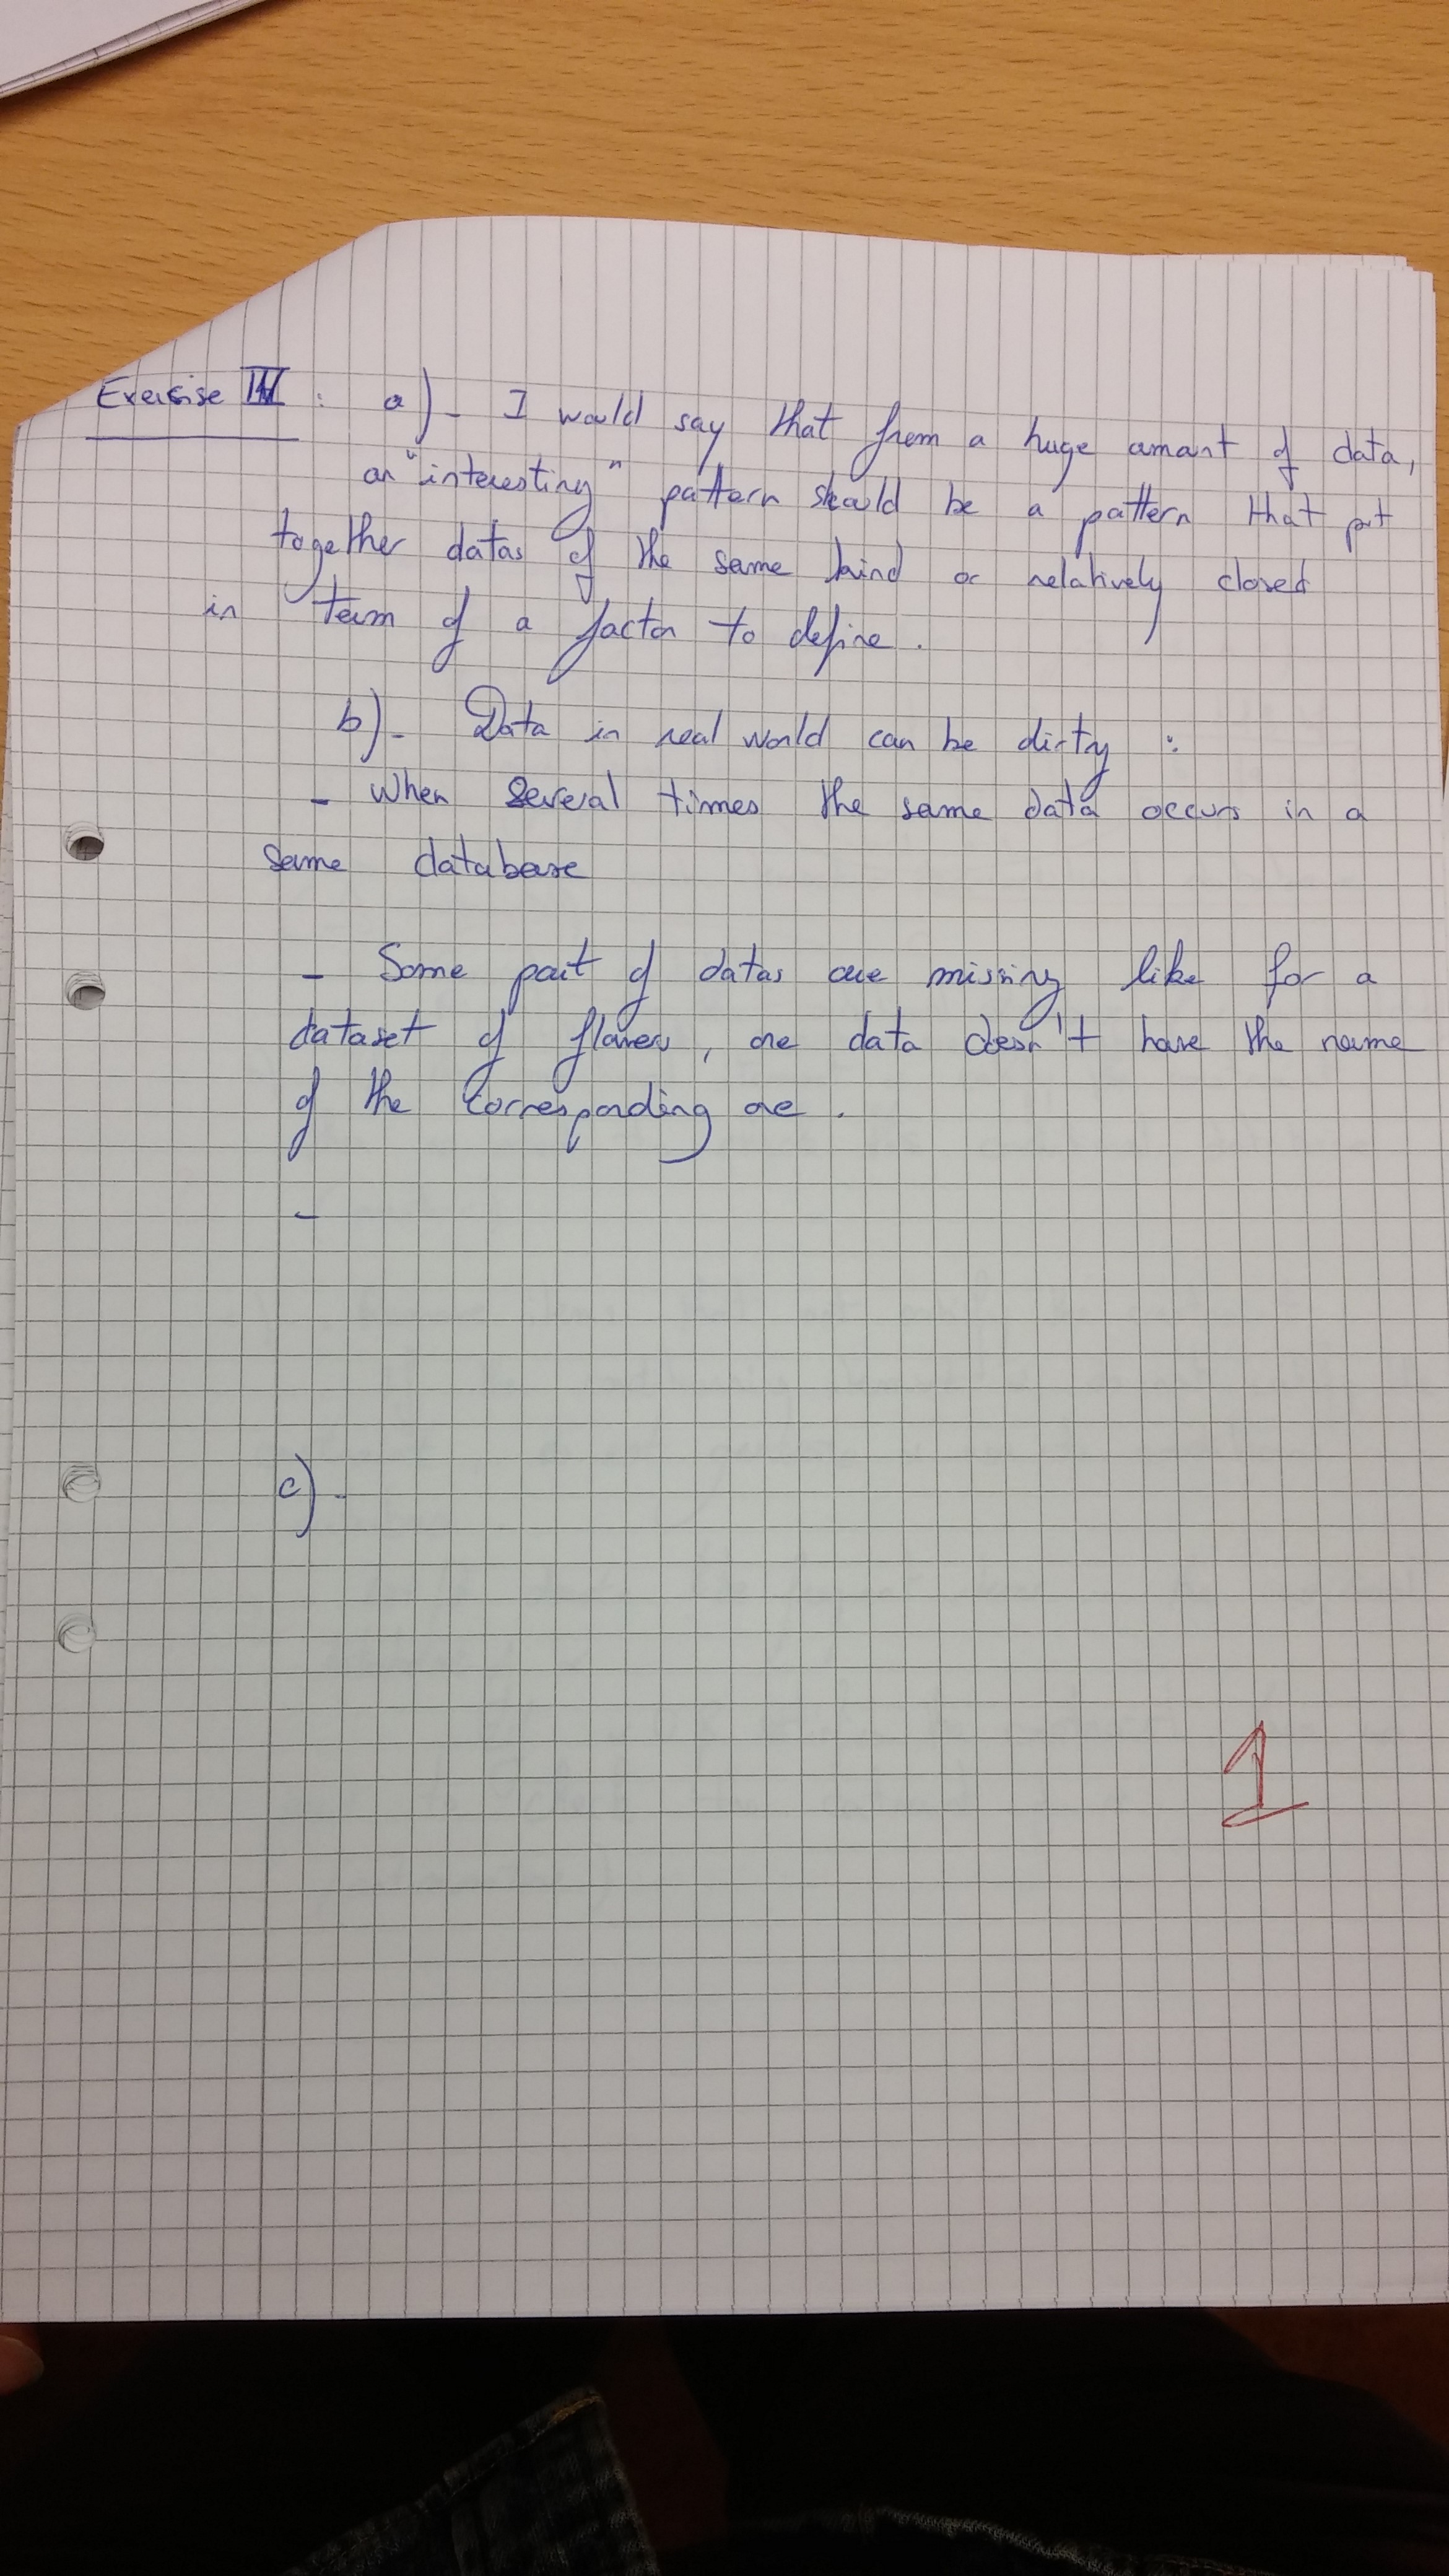 Exercise IV : a)- I would say that from a huge amant of data,
an "interesting" pattern should be a pattern that put
together datas of the same kind or relatively closed
in term of a factor to define.
b)- Data in real world can be dirty :
- When several times the same data occurs in a
same database
- Some part of datas are missing like for a
dataset of flowers, one data doesn't have the name
of the corresponding one.
-
c)-
1